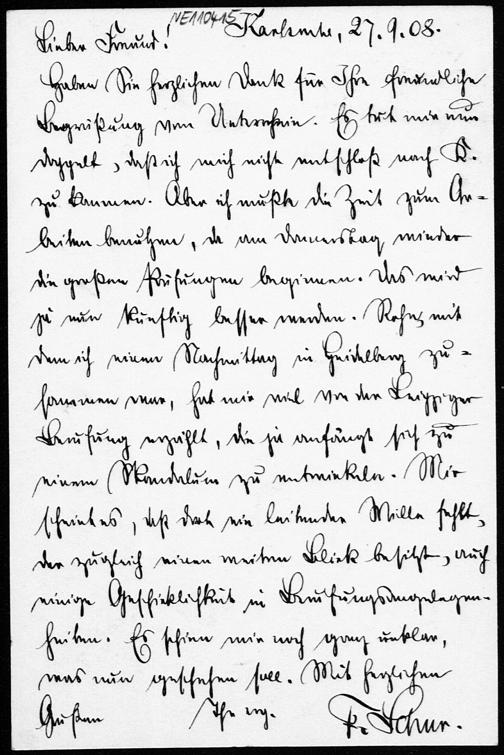 NE110415
Karlsruhe, 27.9.08.
Lieber Freund!
Haben Sie herzlichen Dank für Ihre freundliche
Begrüßung vom Unterrhein. Es tut mir nun
doppelt, daß ich mich nicht entschloß nach K.
zu kommen. Aber ich mußte die Zeit zum Ar-
beiten benutzen, da am Donnerstag wieder
die großen Prüfungen beginnen. Das wird
ja nun künftig besser werden. Rohn, mit
dem ich einen Nachmittag in Heidelberg zu-
sammen war, hat mir viel von der Leipziger
Berufung erzählt, die ja anfängt sich zu
einem Skandalum zu entwickeln. Mir
scheint es, daß dort ein leitender Wille fehlt,
der zugleich einen weiten Blick besitzt, auch
einige Geschicklichkeit in Berufungsangelegen-
heiten. Es schien mir noch ganz unklar,
was nun geschehen soll. Mit herzlichen
Grüßen Ihr erg. F. Schur.